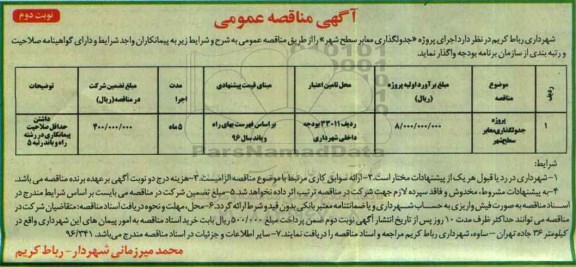 آگهی مناقصه عمومی
نوبت دوم
شهرداری رباط کریم در نظر دارد اجرای پروژه «جدولگذاری معابر سطح شهر» را از طریق مناقصه عمومی به شرح و شرایط زیر به پیمانکاران واجد شرایط و دارای گواهینامه صلاحیت
و رتبه بندی از سازمان برنامه بودجه واگذار نماید.
ردیف | موضوع مناقصه | مبلغ برآورد اولیه پروژه (ریال) | محل تامین اعتبار | مبنای قیمت پیشنهادی | مدت اجرا | مبلغ تضمین شرکت در مناقصه (ریال) | توضیحات
۱ | پروژه جدولگذاری معابر سطح شهر | ۸/۰۰۰/۰۰۰/۰۰۰ | ردیف ۳۳۰۱۱ بودجه داخلی شهرداری | بر اساس فهرست بهای راه و باند سال ۹۶ | ۵ ماه | ۴۰۰/۰۰۰/۰۰۰ | داشتن حداقل صلاحیت پیمانکاری در رشته راه و باند رتبه ۵
ParsNamadData
شرایط:
۱- شهرداری در رد یا قبول هر یک از پیشنهادات مختار است. ۲- ارائه سوابق کاری مرتبط با موضوع مناقصه الزامیست. ۳- هزینه درج دو نوبت آگهی بر عهده برنده مناقصه می باشد.
۴- به پیشنهادات مشروط، مخدوش و فاقد سپرده لازم جهت شرکت در مناقصه ترتیب اثر داده نخواهد شد. ۵- مبلغ تضمین شرکت در مناقصه می بایست بر اساس شرایط مندرج در
اسناد مناقصه به صورت فیش واریزی به حساب شهرداری و یا ضمانتنامه معتبر بانکی بدون قید و شرط ارائه گردد. ۶- محل، مهلت و نحوه دریافت اسناد مناقصه: متقاضیان شرکت در
مناقصه می توانند حداکثر ظرف مدت ۱۰ روز پس از تاریخ انتشار آگهی نوبت دوم ضمن پرداخت مبلغ ۵۰۰/۰۰۰ ریال بابت خرید اسناد مناقصه به امور پیمان های این شهرداری واقع در
کیلومتر ۳۶ جاده تهران - ساوه، شهرداری رباط کریم مراجعه و اسناد مناقصه را دریافت نمایند. ۷- سایر اطلاعات و جزئیات در اسناد مناقصه مندرج می باشد. ۹۶/۳۴۱
محمد میرزمانی شهردار - رباط کریم